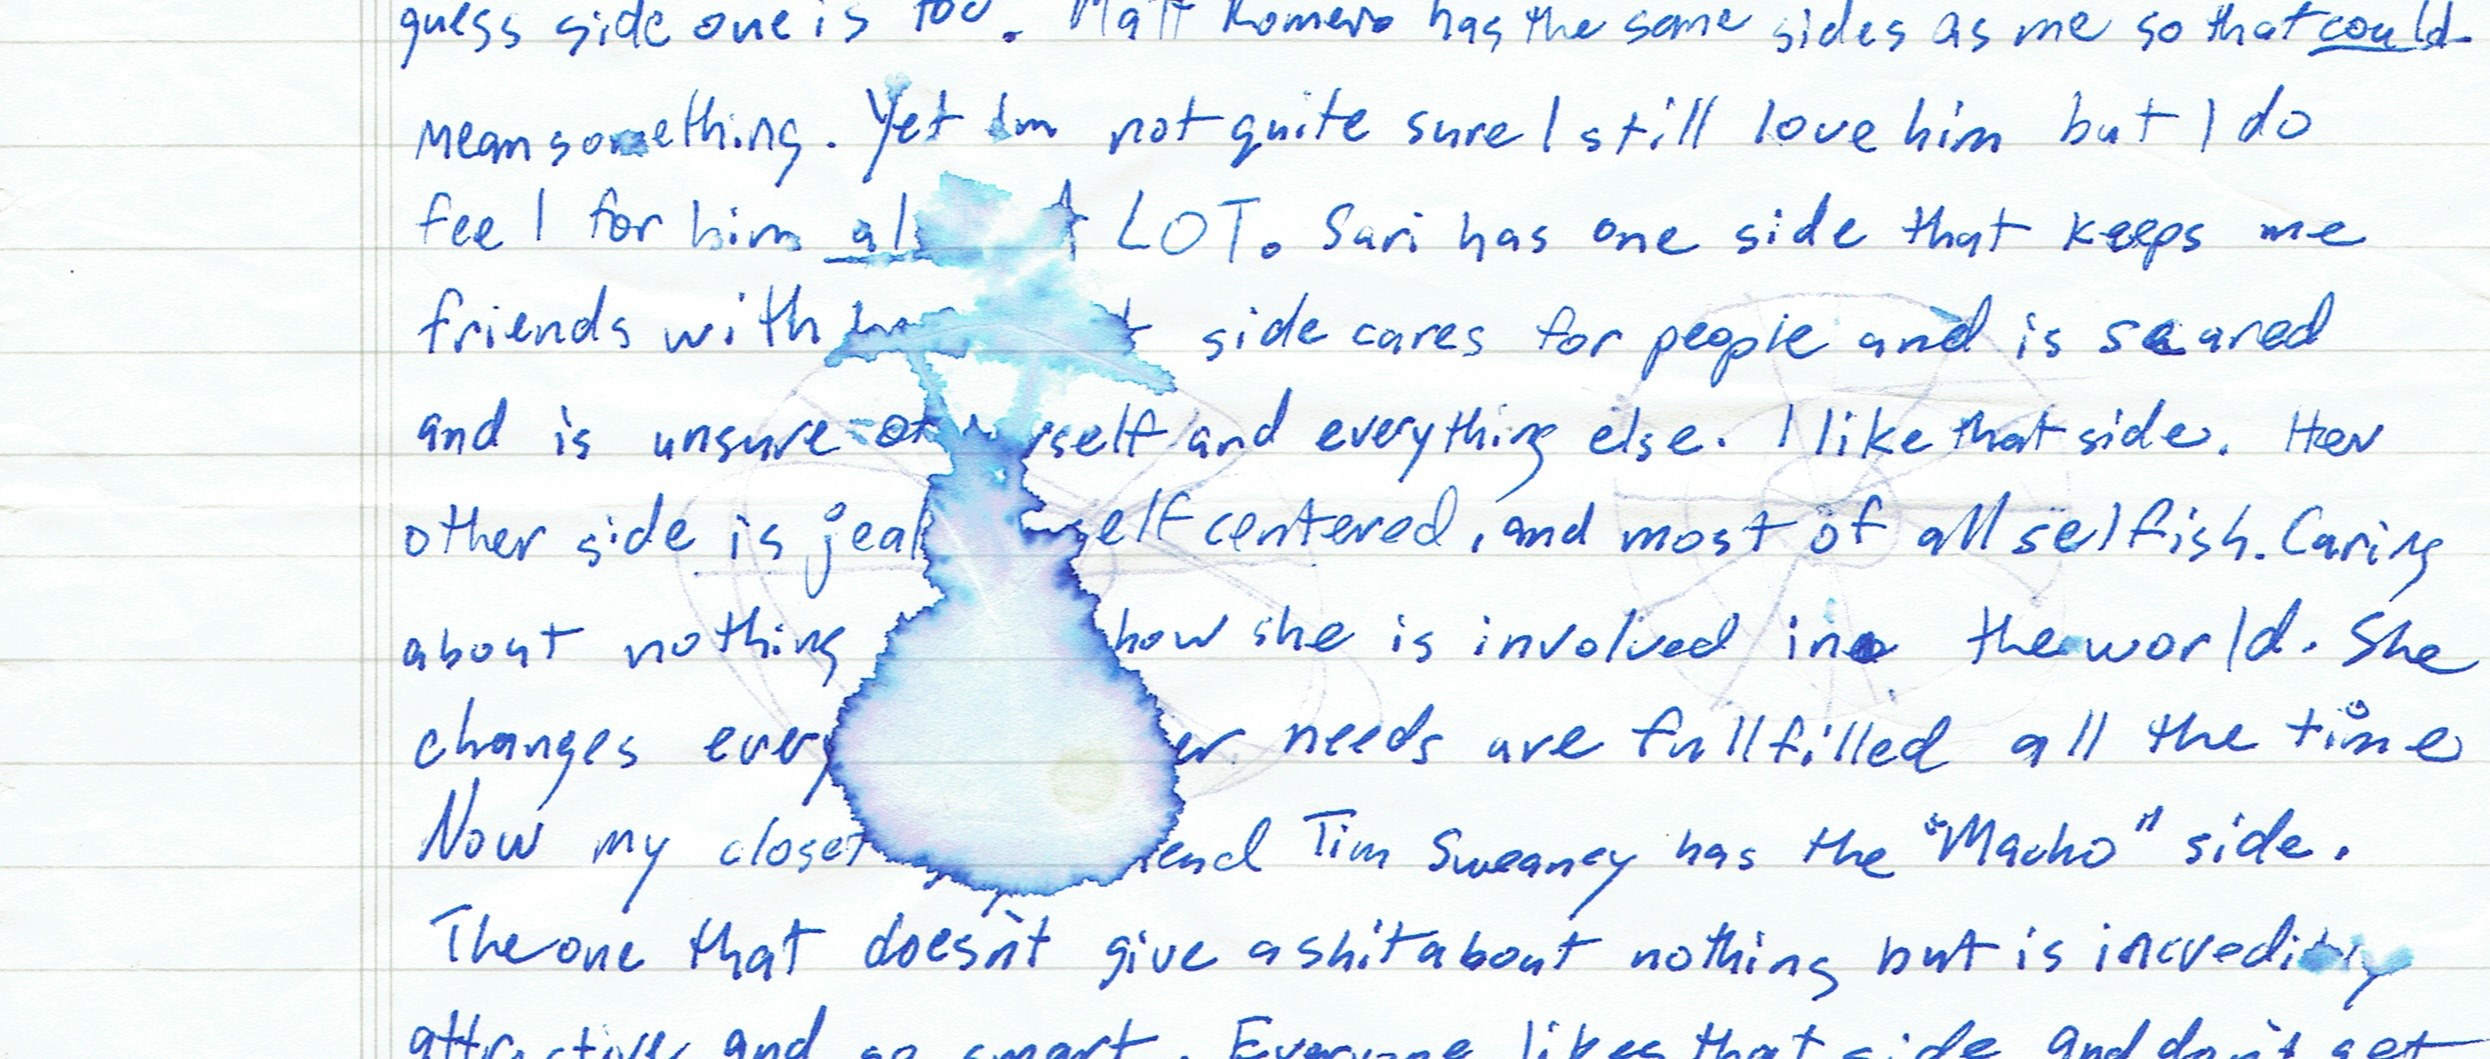 guess side one is too. Matt Romero has the same sides as me so that could
mean something. Yet Im not quite sure I still love him but I do
feel for him LOT. Sari has one side that keeps me
friends with side cares for people and is scared
and is unsure of and everything else. I like that side. Her
other side is self centered, and most of all selfish. Caring
about nothing how she is involved in the world. She
changes every needs are fullfilled all the time
Now my closet Tim Sweaney has the "Macho" side.
The one that doesn't give a shit about nothing but is incredibly
attractive and so smart. Everyone likes that side and don't get